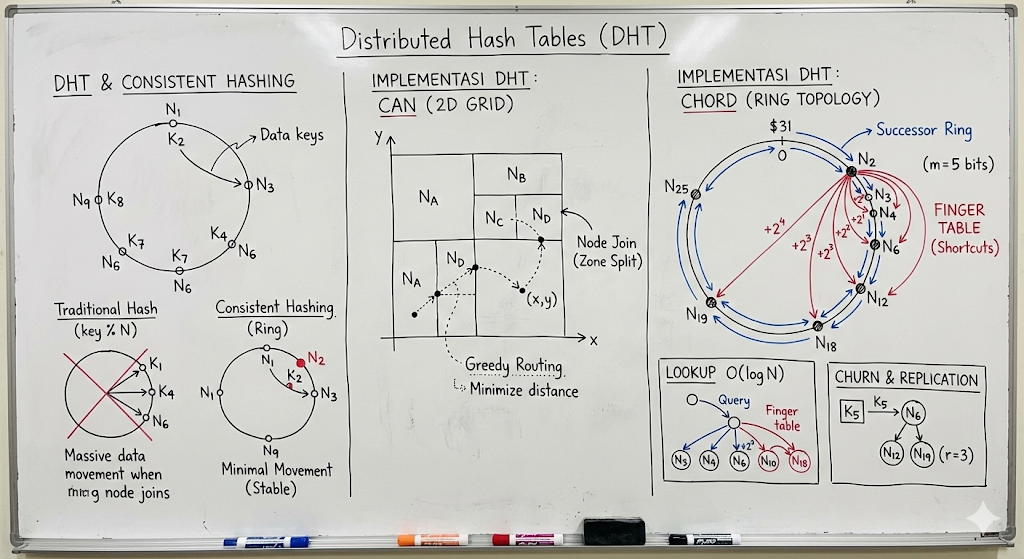 Distributed Hash Tables (DHT)
DHT & CONSISTENT HASHING
N₁
K₂
Data keys
N₃
N₉ K₈
K₇
N₆
K₇
N₆
K₄
N₆
Traditional Hash
(key % N)
K₁
K₄
N₆
Massive data
movement when
node joins
Consistent Hashing
(Ring)
N₁
N₂
K₂
N₁
N₃
N₉
Minimal Movement
(Stable)
IMPLEMENTASI DHT:
CAN (2D GRID)
Y
N_A
N_B
N_C
N_D
N_A
N_D
(x,y)
x
Node Join
(Zone Split)
Greedy Routing
Minimize distance
IMPLEMENTASI DHT:
CHORD (RING TOPOLOGY)
$31
0
Successor Ring
N₂
(m=5 bits)
N₂₅
N₃
N₄
N₆
N₁₂
N₁₈
N₁₉
+2⁴
+2³
+2³
+2²
FINGER
TABLE
(Shortcuts)
LOOKUP O(log N)
Query
Finger
table
+2³
N₅
N₄
N₆
N₁₀
N₁₈
CHURN & REPLICATION
K₅
K₅
N₆
N₁₂
N₁₉
(r=3)